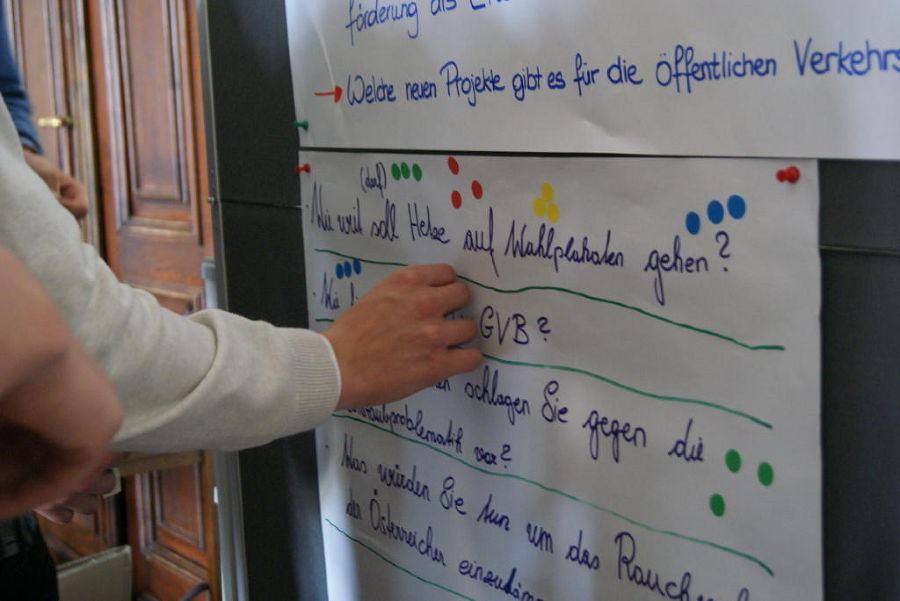 förderung als
→ Welche neuen Projekte gibt es für die öffentlichen Verkehrs
(darf)
· Wie weit soll Hetze auf Wahlplakaten gehen?
· Wie GVB?
schlagen Sie gegen die
staubproblematik vor?
· Was würden Sie tun um das Rauchen
der Österreicher einzudäm